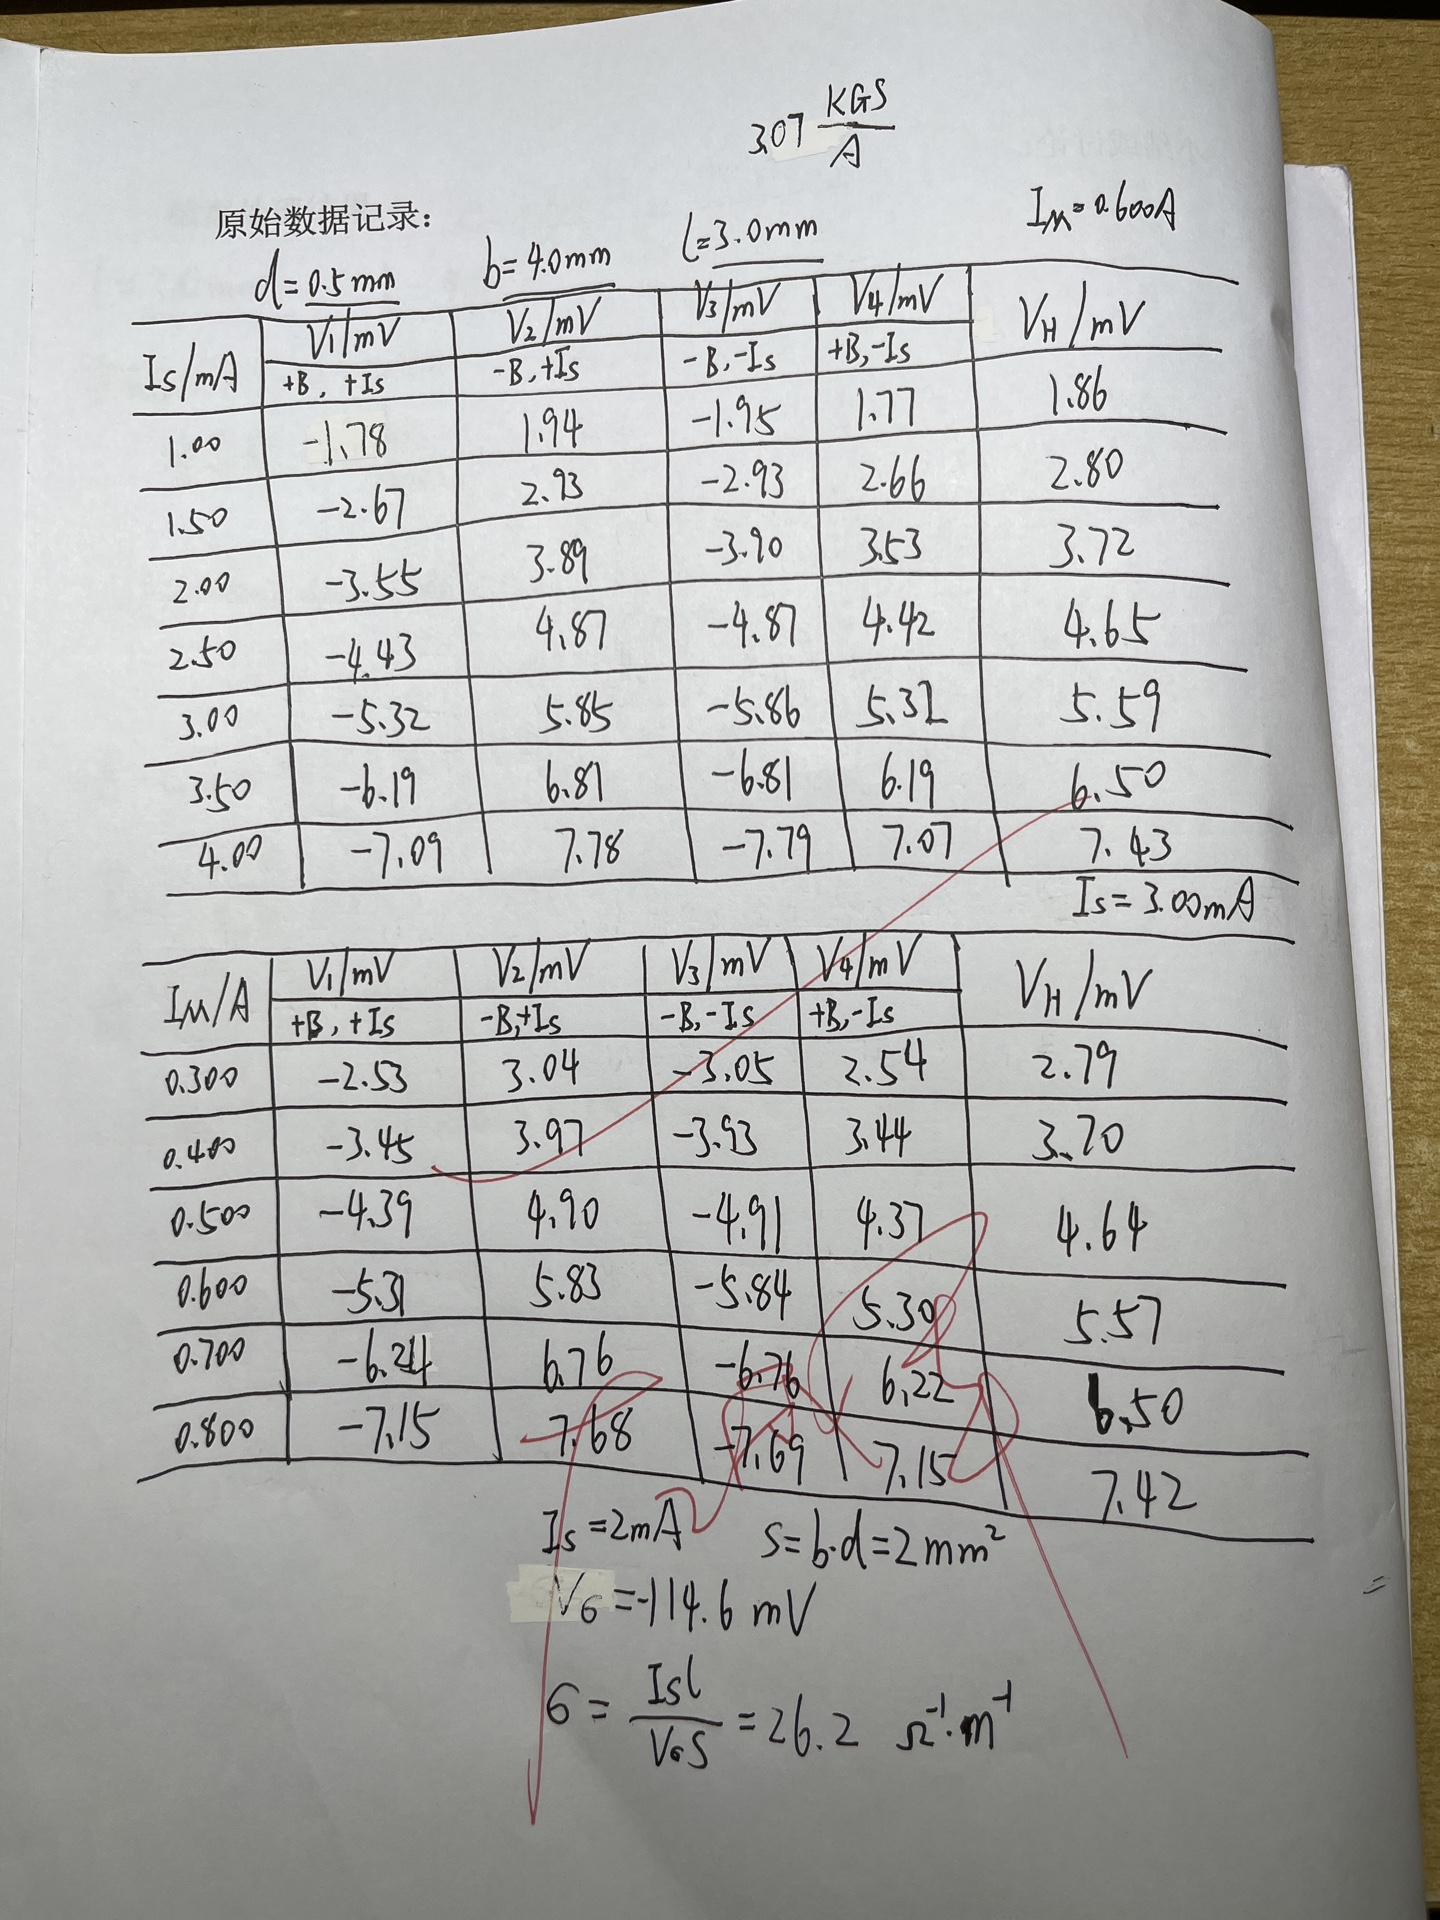 3.07 KGS/A
原始数据记录:
I_M=0.600A
d=0.5mm b=4.0mm l=3.0mm
Is/mA V1/mV V2/mV V3/mV V4/mV VH/mV
+B, +Is -B, +Is -B, -Is +B, -Is
1.00 -1.78 1.94 -1.95 1.77 1.86
1.50 -2.67 2.93 -2.93 2.66 2.80
2.00 -3.55 3.89 -3.90 3.53 3.72
2.50 -4.43 4.87 -4.87 4.42 4.65
3.00 -5.32 5.85 -5.86 5.32 5.59
3.50 -6.19 6.81 -6.81 6.19 6.50
4.00 -7.09 7.78 -7.79 7.07 7.43
Is=3.00mA
IM/A V1/mV V2/mV V3/mV V4/mV VH/mV
+B, +Is -B,+Is -B,-Is +B,-Is
0.300 -2.53 3.04 -3.05 2.54 2.79
0.400 -3.45 3.97 -3.93 3.44 3.70
0.500 -4.39 4.90 -4.91 4.37 4.64
0.600 -5.31 5.83 -5.84 5.30 5.57
0.700 -6.24 6.76 -6.76 6.22 6.50
0.800 -7.15 7.68 -7.69 7.15 7.42
Is=2mA S=b·d=2mm²
Vσ=-114.6 mV
σ=Isl/VσS=26.2 Ω⁻¹·m⁻¹